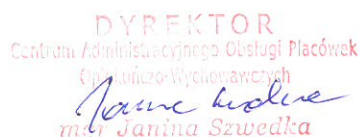 DYREKTOR
Centrum Administracyjnego Obsługi Placówek
Opiekuńczo-Wychowawczych
mgr Janina Szwedka